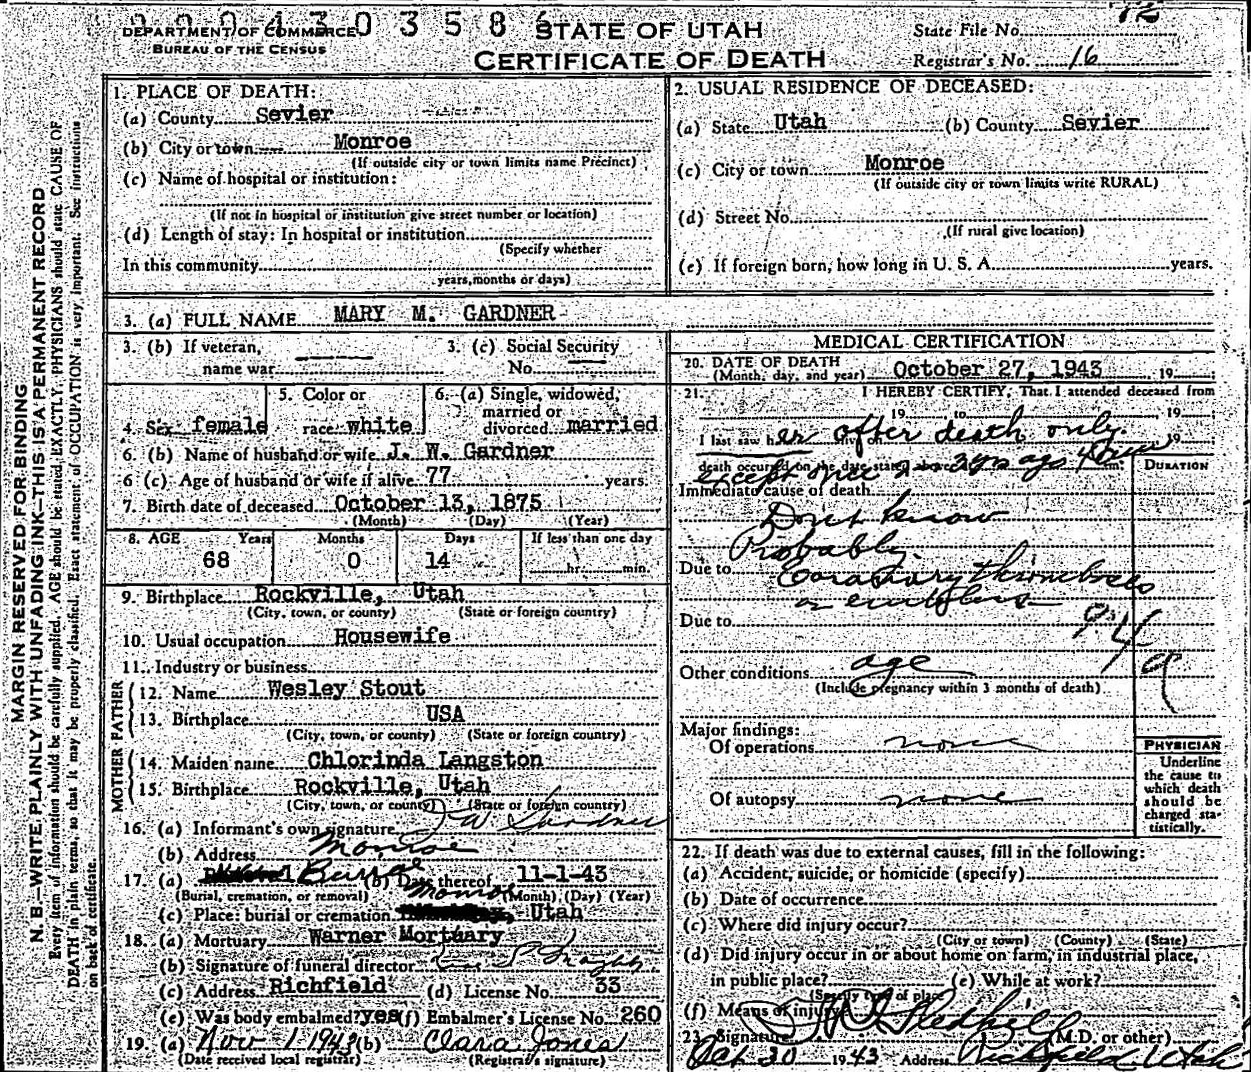 DEPARTMENT OF COMMERCE
BUREAU OF THE CENSUS
STATE OF UTAH
CERTIFICATE OF DEATH
State File No. 72
Registrar's No. 16
MARGIN RESERVED FOR BINDING
N. B.—WRITE PLAINLY WITH UNFADING INK—THIS IS A PERMANENT RECORD
Every item of information should be carefully supplied. AGE should be stated EXACTLY. PHYSICIANS should state CAUSE OF
DEATH in plain terms, so that it may be properly classified. Exact statement of OCCUPATION is very important. See instructions
on back of certificate.
1. PLACE OF DEATH:
(a) County Sevier
(b) City or town Monroe
(If outside city or town limits name Precinct)
(c) Name of hospital or institution:
(If not in hospital or institution give street number or location)
(d) Length of stay: In hospital or institution
(Specify whether
In this community
years, months or days)
2. USUAL RESIDENCE OF DECEASED:
(a) State Utah (b) County Sevier
(c) City or town Monroe
(If outside city or town limits write RURAL)
(d) Street No.
(If rural give location)
(e) If foreign born, how long in U. S. A. years.
3. (a) FULL NAME MARY M. GARDNER
3. (b) If veteran, name war
3. (c) Social Security No.
4. Sex female
5. Color or race white
6. (a) Single, widowed, married or divorced married
6. (b) Name of husband or wife J. W. Gardner
6 (c) Age of husband or wife if alive 77 years.
7. Birth date of deceased October 13, 1875
(Month) (Day) (Year)
8. AGE Years Months Days If less than one day
68 0 14 hr. min.
9. Birthplace Rockville, Utah
(City, town, or county) (State or foreign country)
10. Usual occupation Housewife
11. Industry or business
FATHER
12. Name Wesley Stout
13. Birthplace USA
(City, town, or county) (State or foreign country)
MOTHER
14. Maiden name Chlorinda Langston
15. Birthplace Rockville, Utah
(City, town, or county) (State or foreign country)
16. (a) Informant's own signature J. W. Gardner
(b) Address Monroe
17. (a) Burial (b) Date thereof 11-1-43
(Burial, cremation, or removal) (Month) (Day) (Year)
(c) Place: burial or cremation Monroe, Utah
18. (a) Mortuary Warner Mortuary
(b) Signature of funeral director
(c) Address Richfield (d) License No. 33
(e) Was body embalmed? yes (f) Embalmer's License No. 260
19. (a) Nov 1 1943 (b) Clara Jones
(Date received local registrar) (Registrar's signature)
MEDICAL CERTIFICATION
20. DATE OF DEATH
(Month, day, and year) October 27, 1943 19
21. I HEREBY CERTIFY, That I attended deceased from
19 to 19
I last saw her after death only. 19
death occurred on the date stated above
except once 3 yrs ago
DURATION
Immediate cause of death
Don't know
Probably
Due to Coronary thrombosis
or embolism
Due to
94a
Other conditions age
(Include pregnancy within 3 months of death)
Major findings:
Of operations none
Of autopsy none
PHYSICIAN
Underline
the cause to
which death
should be
charged sta-
tistically.
22. If death was due to external causes, fill in the following:
(a) Accident, suicide, or homicide (specify)
(b) Date of occurrence
(c) Where did injury occur?
(City or town) (County) (State)
(d) Did injury occur in or about home on farm, in industrial place,
in public place? (e) While at work?
(Specify type of place)
(f) Means of injury
23. Signature (M.D. or other)
Oct 30 1943 Address Richfield Utah